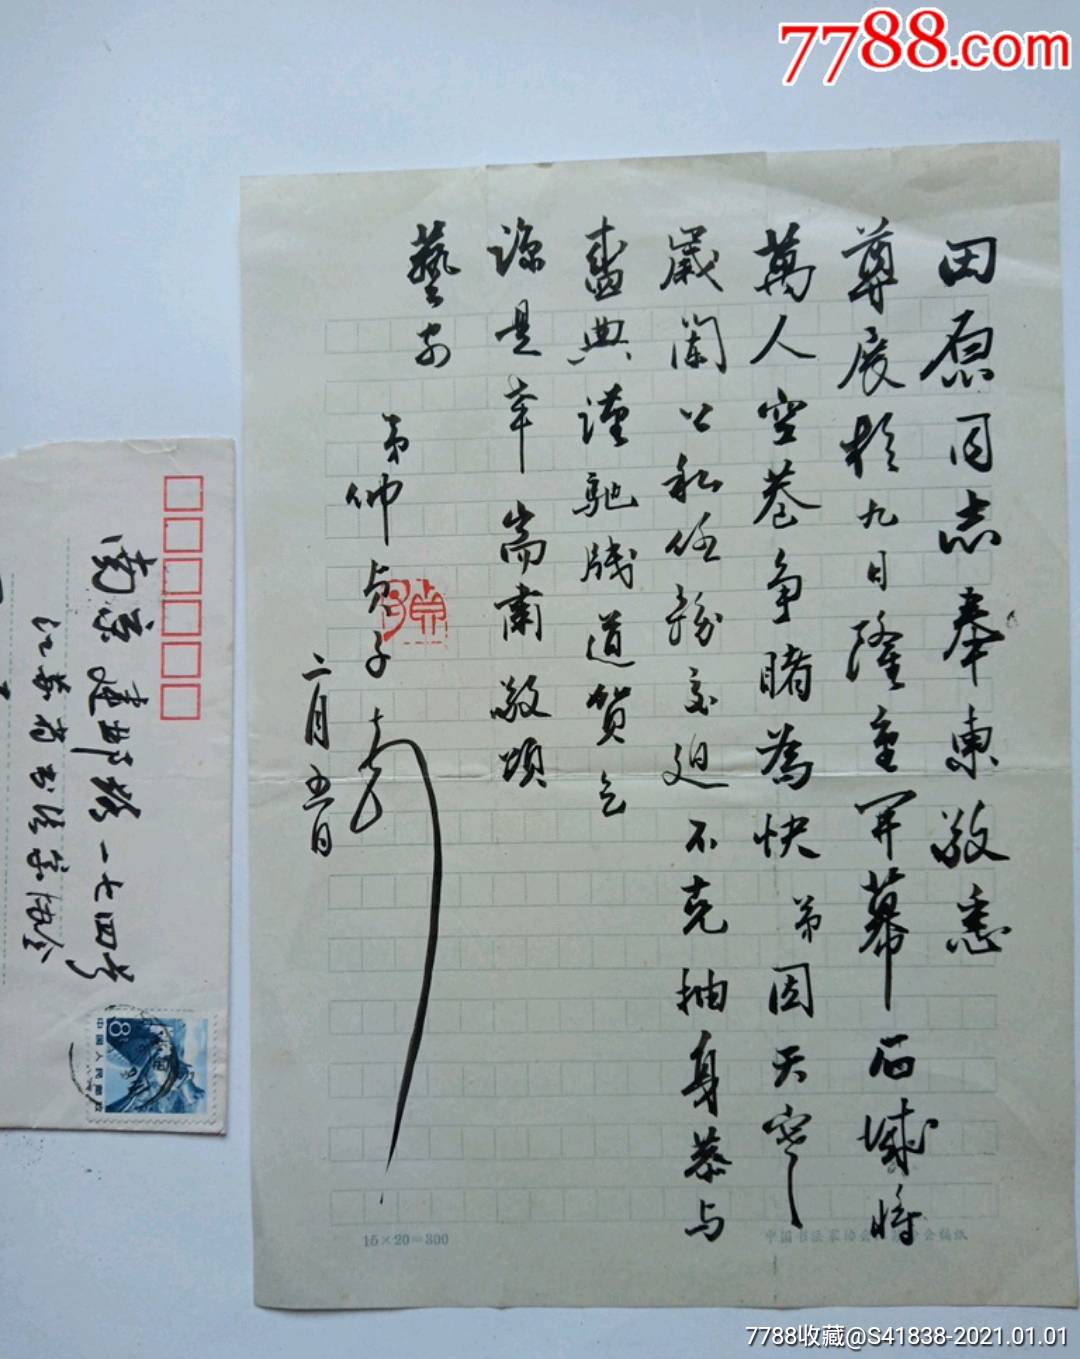 7788.com
田原同志奉柬敬悉
尊展於九日隆重开幕石城将
萬人空巷争睹為快弟因天寒
歲闌公私任務交迫不克抽身恭与
盛典谨驰牋道贺乞
諒是幸耑肅敬頌
藝安
弟仲贞子
二月五日
15×20=300
中国书法家协会 分会稿纸
南京建邺路一七四号
江苏省书法家协会
8
中国人民邮政
7788收藏@S41838-2021.01.01